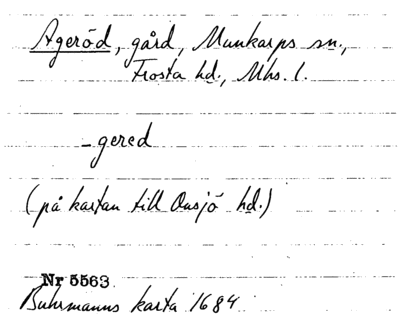 Ageröd, gård, Munkarps sn.,
Frosta hd., Mhs. l.
-gered
(på kartan till Onsjö hd.)
Nr 5563
Buhrmanns karta 1684